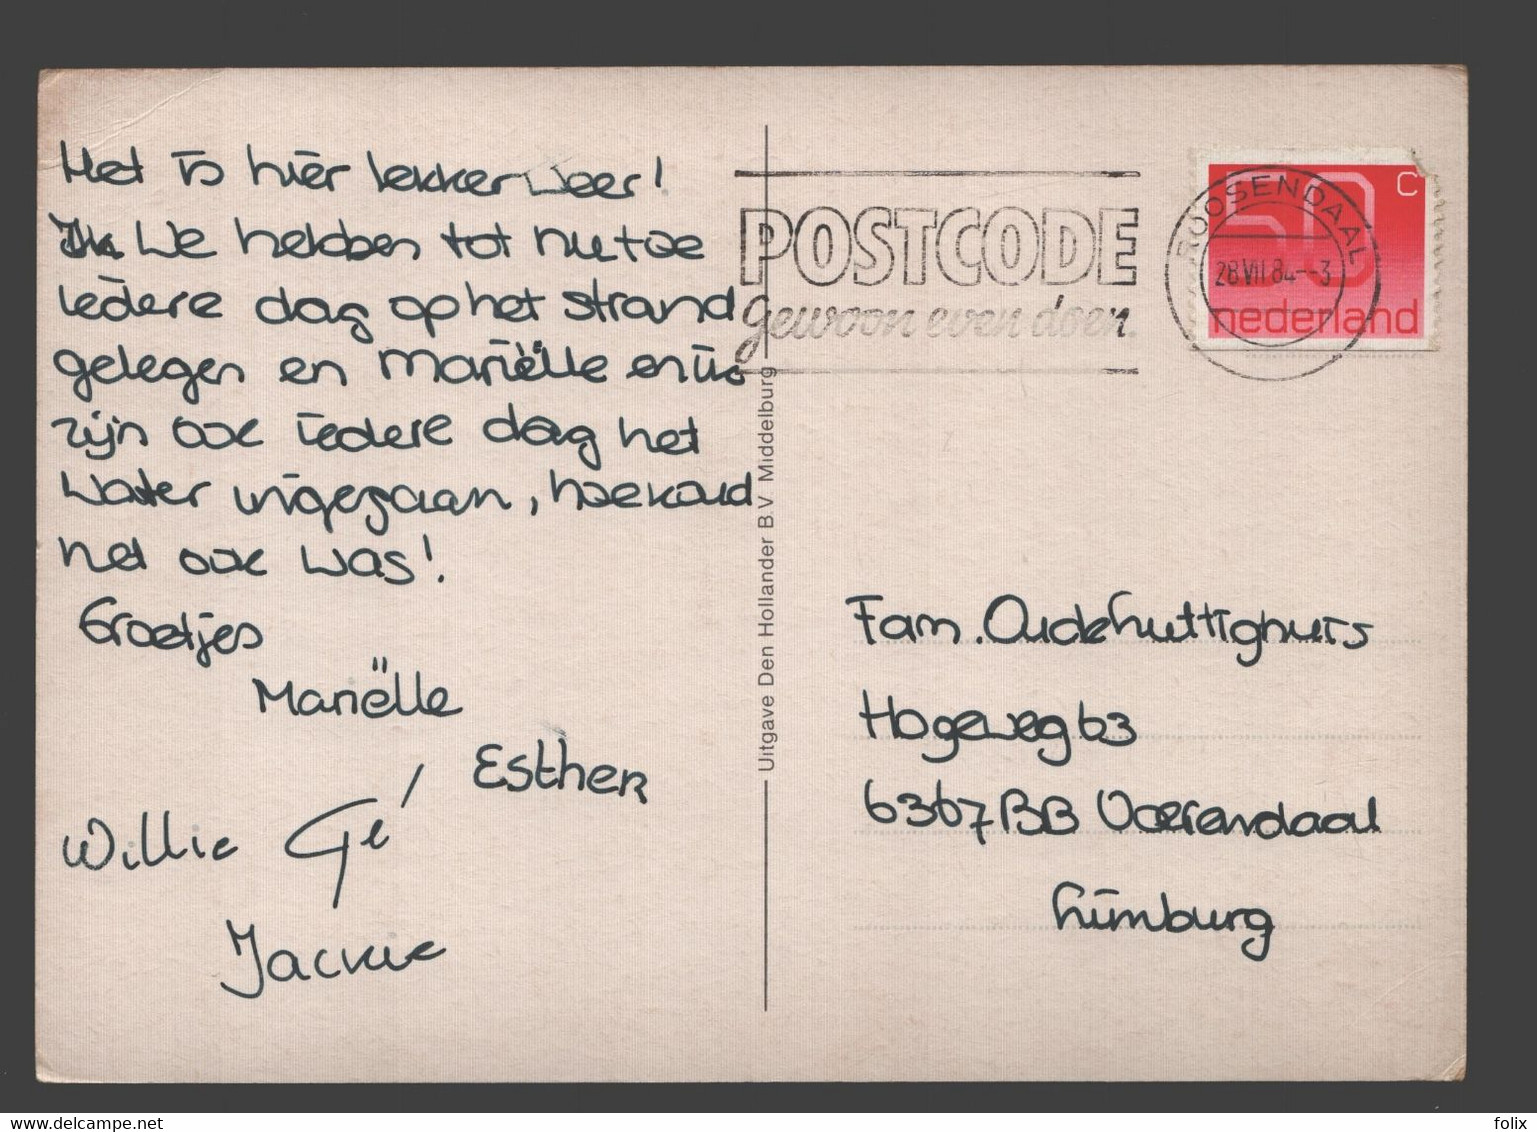 Het is hier lekker weer!
Ik We hebben tot nu toe
iedere dag op het strand
gelegen en Mariëlle en ik
zijn ook iedere dag het
water ingegaan, hoe koud
het ook was!
Groetjes
Mariëlle
Esther
Willie Gé
Jackie
Uitgave Den Hollander B.V. Middelburg
POSTCODE
gewoon even doen.
ROOSENDAAL
28 VII 84 --3
50 C
nederland
Fam. Oudehuttighuis
Hogeweg 63
6367 BB Voerendaal
Limburg
www.delcampe.net
folix